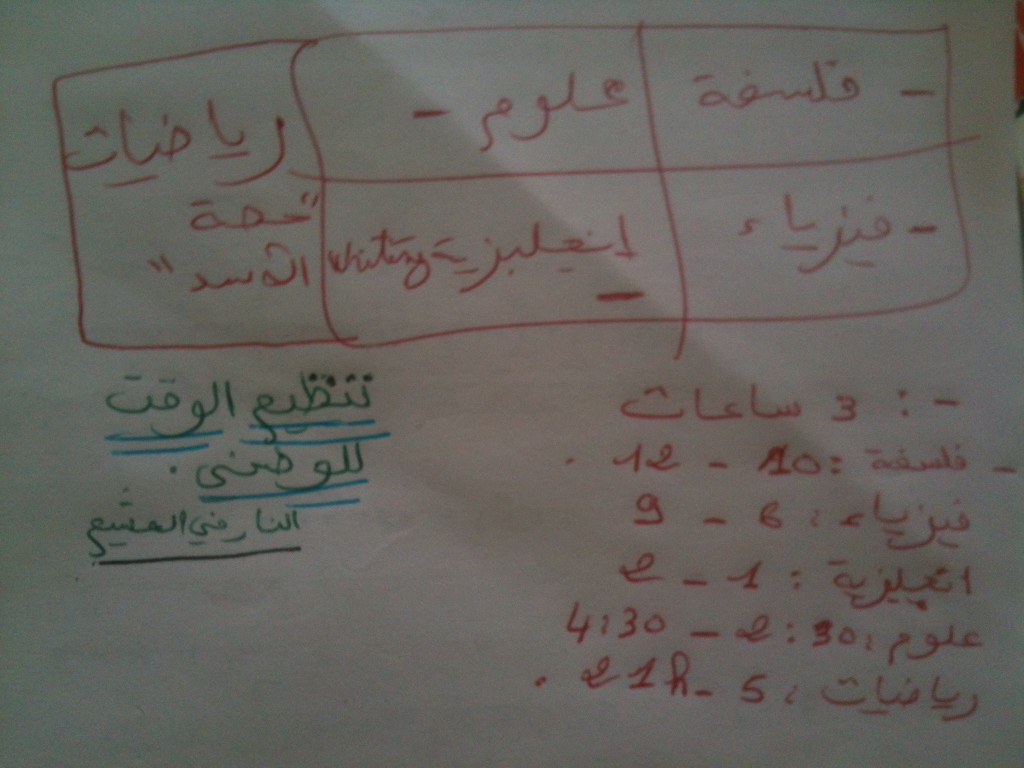 - فلسفة
علوم -
رياضيات
- فيزياء
انجليزية writing -
"حصة
الأسد"
- : 3 ساعات
- فلسفة : 10 - 12 .
فيزياء : 6 - 9
انجليزية : 1 - 2
علوم : 2:30 - 4:30
رياضيات : 5 - 21h .
تنظيم الوقت
للوطني .
النار في الهشيم